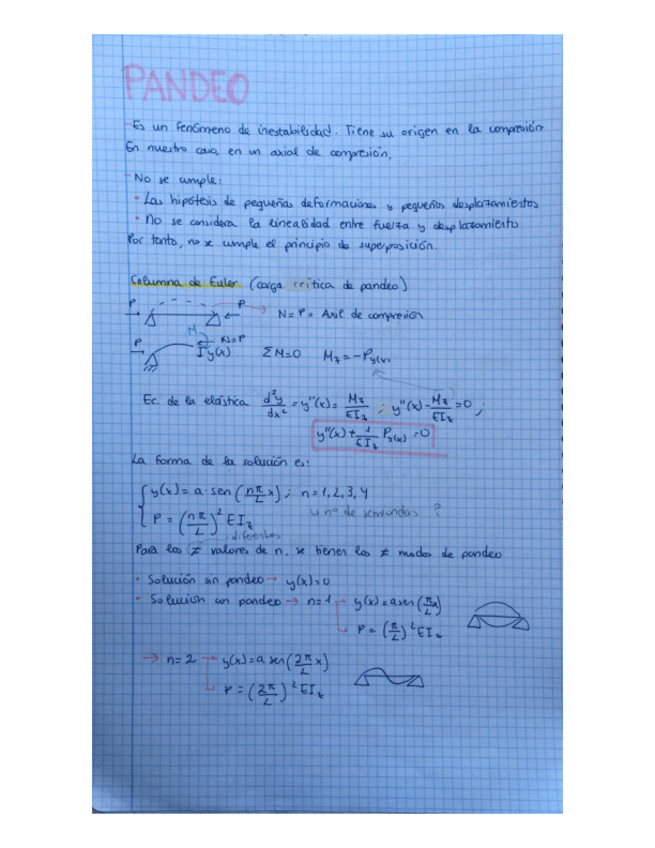 PANDEO
- Es un fenómeno de inestabilidad. Tiene su origen en la compresión
En nuestro caso, en un axial de compresión.
- No se cumple:
• Las hipótesis de pequeñas deformaciones o pequeños desplazamientos
• No se considera la linealidad entre fuerza y desplazamiento
Por tanto, no se cumple el principio de superposición.
Columna de Euler (carga crítica de pandeo)
P P → N = P = Axil de compresión
P M N=P y(x) ΣM=0 Mz = -Py(x)
Ec. de la elástica d²y/dx² = y''(x) = Mz/EIz ; y''(x) - Mz/EIz = 0 ;
y''(x) + 1/EIz Py(x) = 0
La forma de la solución es:
y(x) = a · sen (nπ/L x) ; n = 1, 2, 3, 4
P = (nπ/L)² EIz ↳ nº de semiondas ?
diferentes
Para los ≠ valores de n, se tienen los ≠ modos de pandeo
• Solución sin pandeo → y(x) = 0
• Solución con pandeo → n=1 → y(x) = a sen (π/L x)
↳ P = (π/L)² EIz
→ n=2 → y(x) = a sen (2π/L x)
↳ P = (2π/L)² EIz